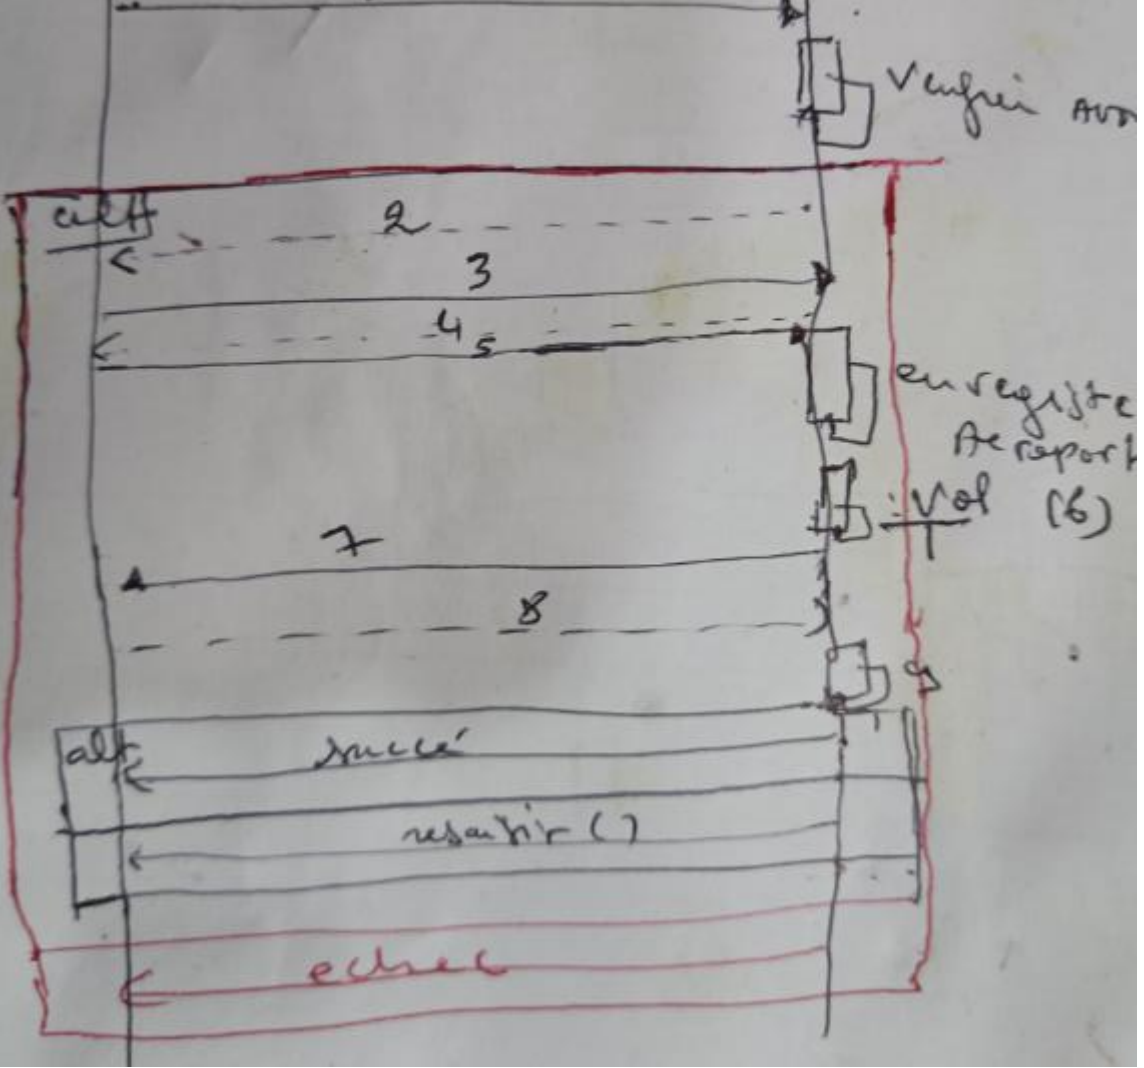 alt
2
3
4
5
enregiste
Aeroport
:Vol (6)
7
8
9
alt
succé
resaisir ()
echec